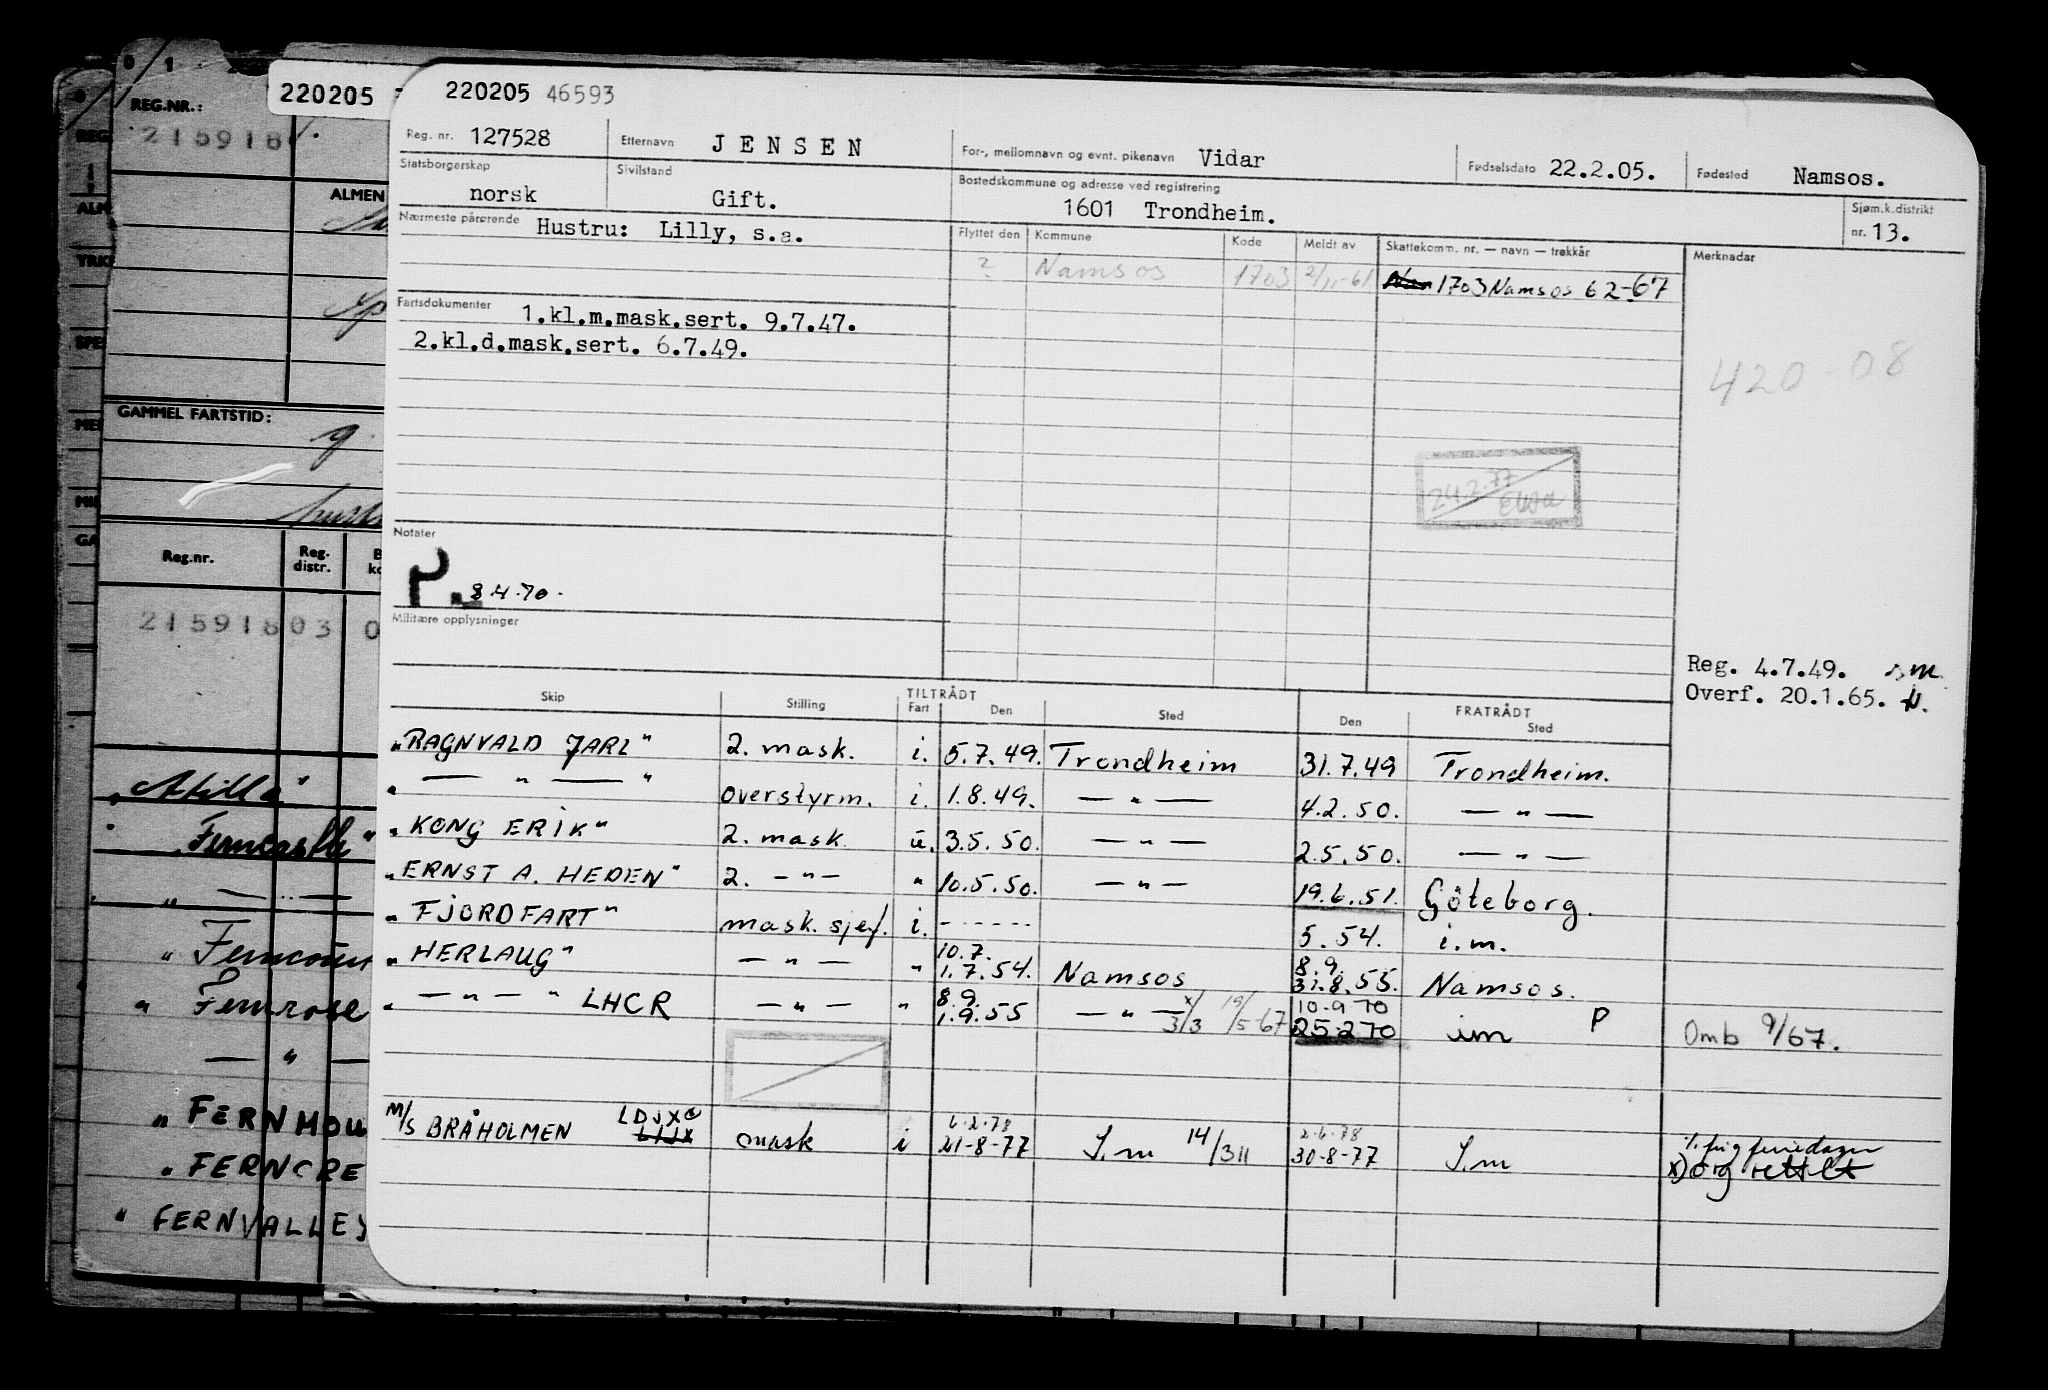 0 1
REG.NR.:
215918
ALMEN
GAMMEL FARTSTID:
Reg.nr. Reg. distr.
21591803 0
"Atilla"
"Ferncastle"
" — " —
" Ferncour
" Fernrose
— " —
" FERNMOU
" FERNCRE
" FERNVALLEY
220205
220205 46593
Reg. nr. 127528 Etternavn JENSEN For-, mellomnavn og evnt. pikenavn Vidar Fødselsdato 22.2.05. Fødested Namsos.
Statsborgerskap norsk Sivilstand Gift. Bostedskommune og adresse ved registrering 1601 Trondheim. Sjøm.k.distrikt nr. 13.
Nærmeste pårørende Hustru: Lilly, s.a.
Flyttet den Kommune Kode Meldt av Skattekomm. nr. — navn — trekkår Merknader
? Namsos 1703 2/11-61 1703 Namsos 62-67
Fartsdokumenter 1.kl.m.mask.sert. 9.7.47.
2.kl.d.mask.sert. 6.7.49.
420-08
24.2.77
Notater
P. 8.4.70.
Militære opplysninger
Reg. 4.7.49.
Overf. 20.1.65.
Skip Stilling TILTRÅDT Fart Den Sted FRATRÅDT Den Sted
"RAGNVALD JARL" 2. mask. i. 5.7.49. Trondheim 31.7.49 Trondheim.
" — " — " overstyrm. i. 1.8.49. — " — 4.2.50. — " —
"KONG ERIK" 2. mask. u. 3.5.50. — " — 2.5.50. — " —
"ERNST A. HEDEN" 2. — " — " 10.5.50. — " — 19.6.51. Göteborg.
"FJORDFART" mask.sjef. i. ------ 5.54. i.m.
"HERLAUG" — " — " 10.7. 1.7.54. Namsos 8.9. 31.8.55. Namsos.
" — " — " LHCR — " — " 8.9. 1.9.55 — " — x 3/3 19/5-67 10-9 70 25-2 70 im P Omb 9/67.
M/S BRÅHOLMEN LDJX mask i 6.2.78 21-8-77 I.m 14/311 2.6.78 30-8-77 I.m
x) og rettelt